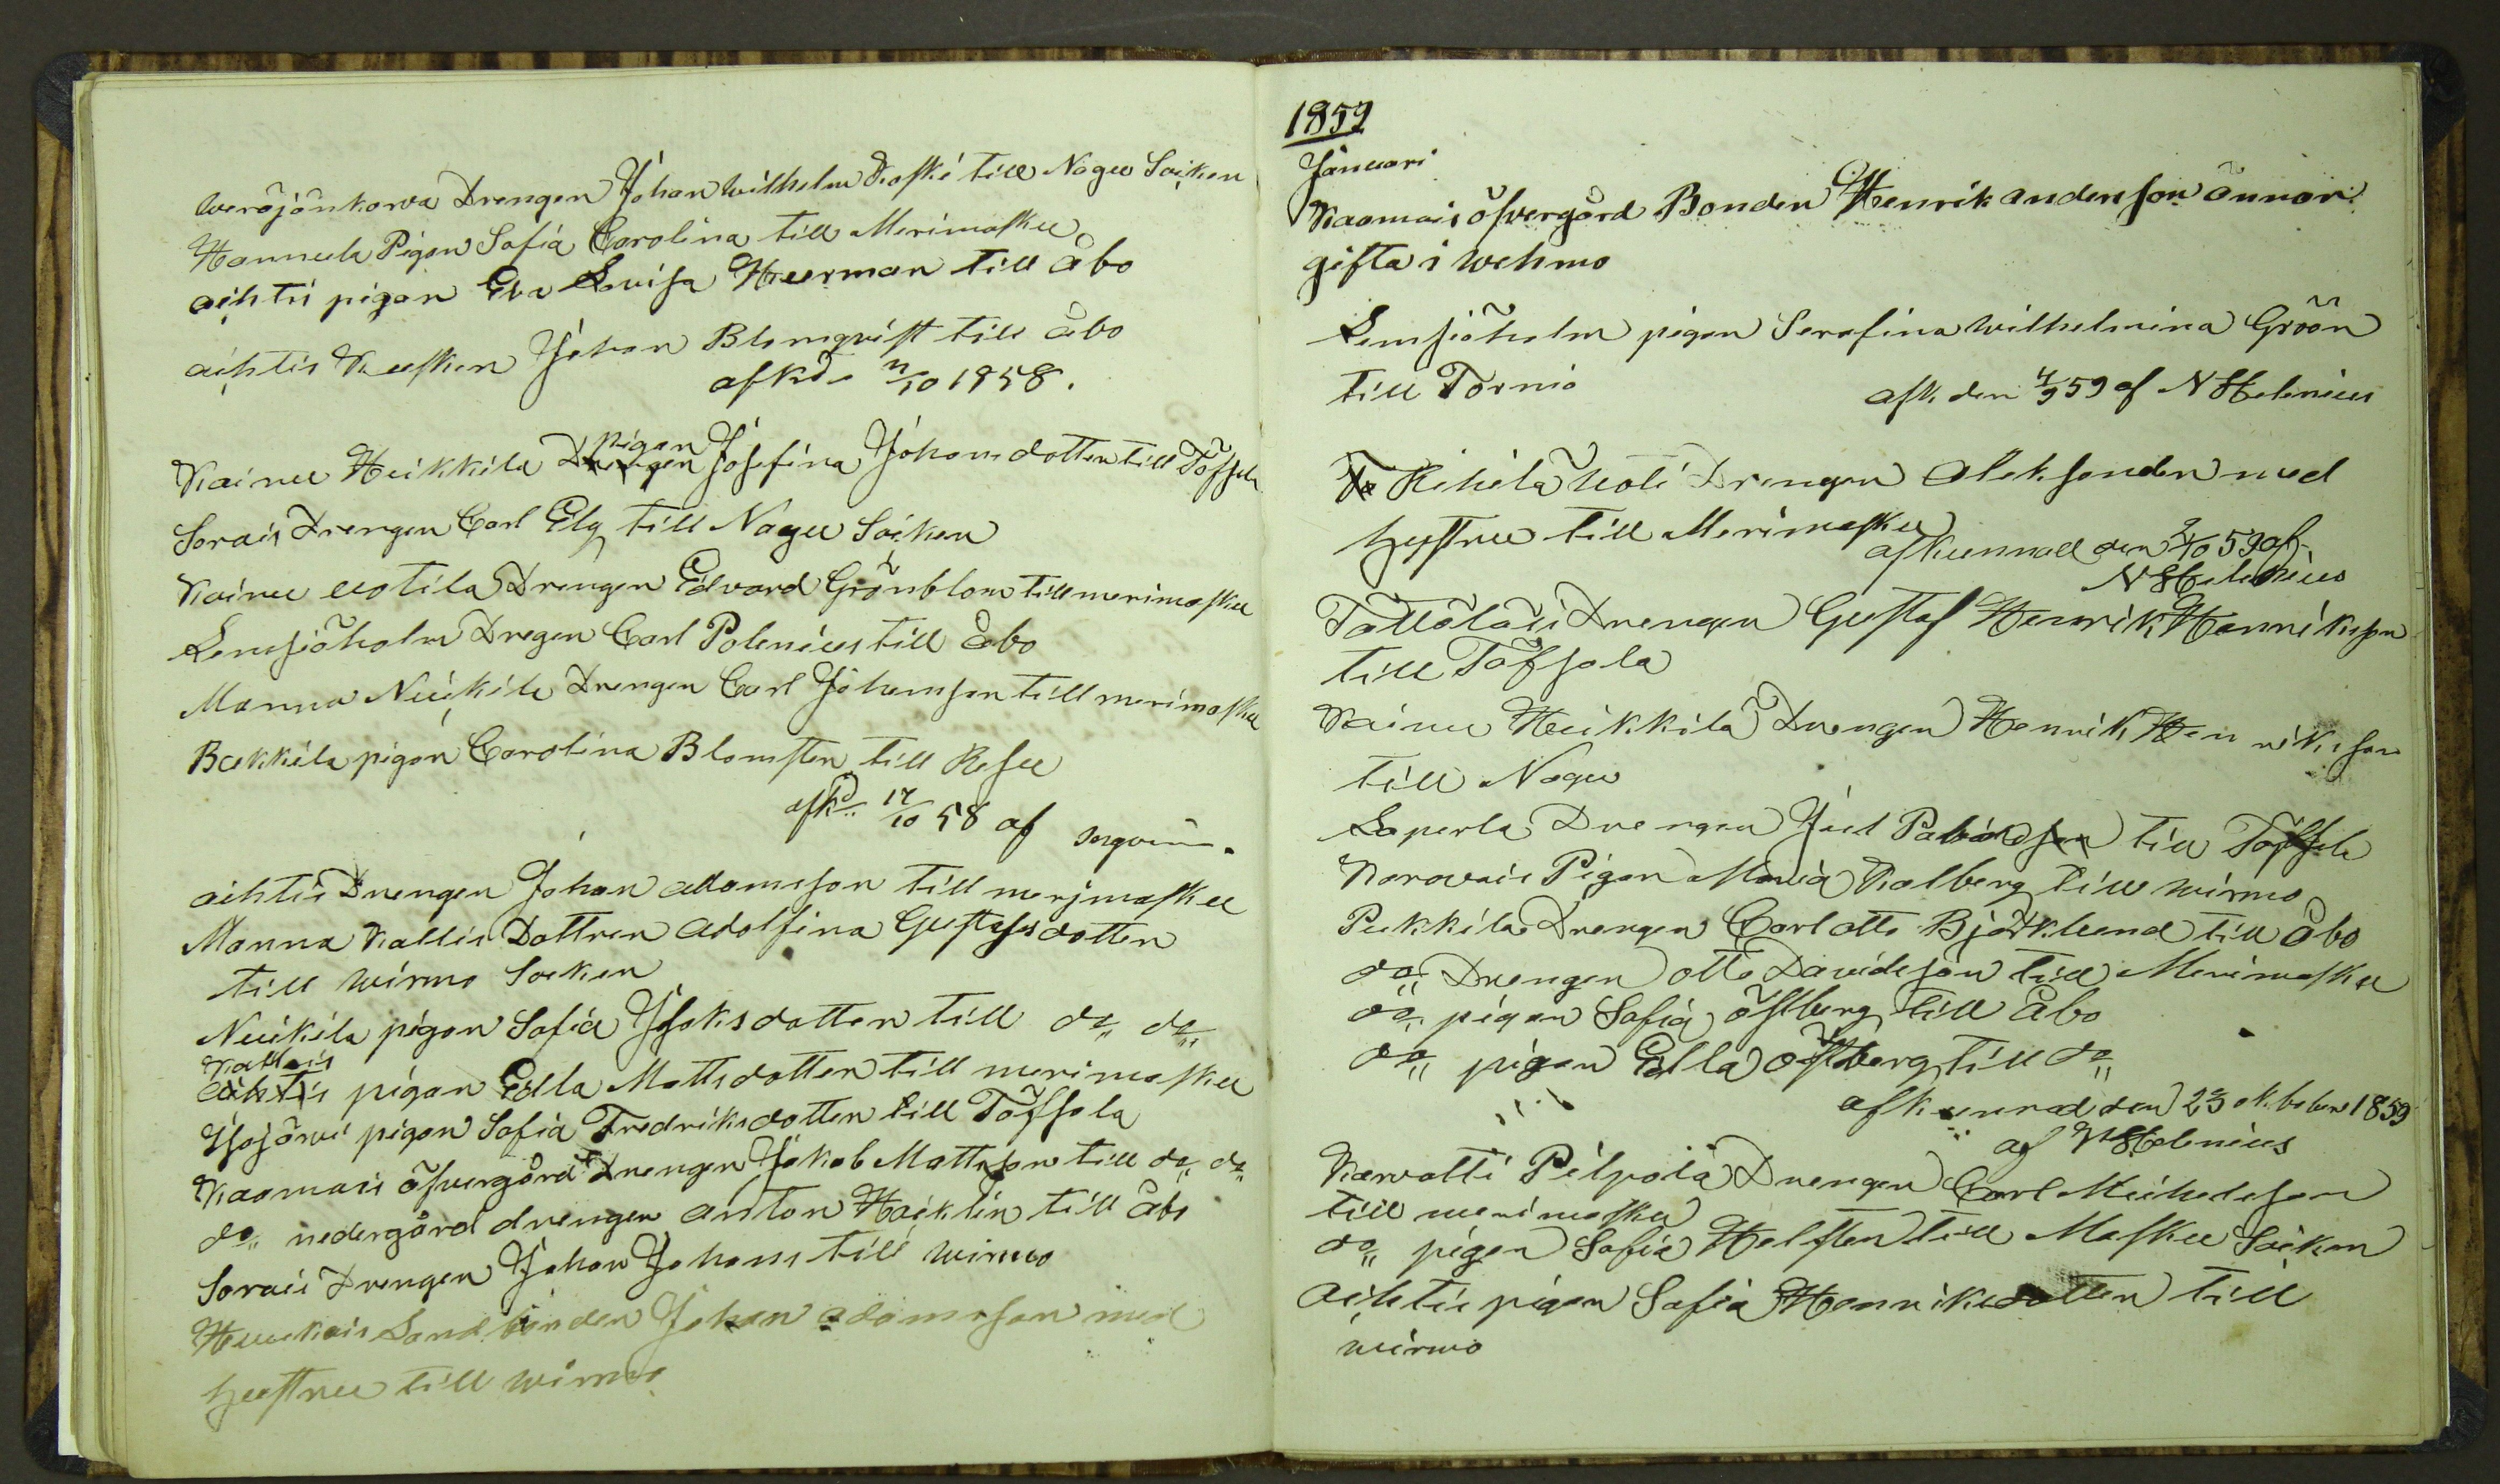 weröjänkorva Drengen Johan Wilhelm Koski till Nagu Soiken
Hannula Pigan Sofia Carolina till Merimasku
aihtis pigan Eva Lovisa Huurman till åbo
aihtis Kusken Johan Blomqvist till åbo
afkd 11/10 1858.
pigan
Kainu Heikkilä Drengen Josefina Johansdotter till Töfsala
Sorais Drengen Carl Elg till Nagu Soiken
Kainu uotila Drengen Edvard Grönblom till merimasku
Lemsjöholm Dregen Carl Polenius till åbo
Manna Nuikila Drengen Carl Johansson till merimasku
Bakkila pigan Carolina Blomsten till Resu
afkd 17/10 58 af
aihtis Drengen Johan adamsson till merjmasku
Manna Kallis Dottren adolfina Gustafsdotter
till wirmo Socken
Nuikila pigan Sofia Isaksdotter till do do
Kallais
aihtis pigan Edla Mattsdotter till merimasku
Isojärwi pigan Sofia Fredriksdotter till Töfsala
Kaamais öfvergård Drengen Jakob Mattsson till do do
do nedergård drengen anton Haiklin till åbo
Sorais Drengen Johan Johans till wirmo
Huuskais Landbonden Johan adamsson med
hustru till wirmo
1859
Januari
Kaamais öfvergård Bonden Henrik andersson ännar
gifta i wehmo
Lemsjöholm pigan Serafina wilhelmina Gröön
till Tornio
afk den 4/9 59 af N Helenius
Kihilä koti Drengen Aleksander med
hustru till Merimasku
afkunnad den 2/10 59 af
N Helenius
Tattolais Drengen Gustaf Henrik Hanniksson
till Töfsala
Kainu Heikkilä Drengen Henrik Henriksson
till Nagu
Laperla Drengen Joel till Töfsala
Karavais Pigan Maria Kalberg till wirmo
Pukkila Drengen Carl otto Björklund till åbo
do Drengen otto Davidsson till Merimasku
do pigan Sofia östberg till åbo
do pigan Edla östberg till do
afkunnad den 23 oktober 1859
af N Helenius
Karvatti Pilpola Drengen Carl Mickelsson
till merimasku
do pigan Sofia Helsten till Masku Soiken
aihtis pigan Sofia Henriksdotter till
wirmo